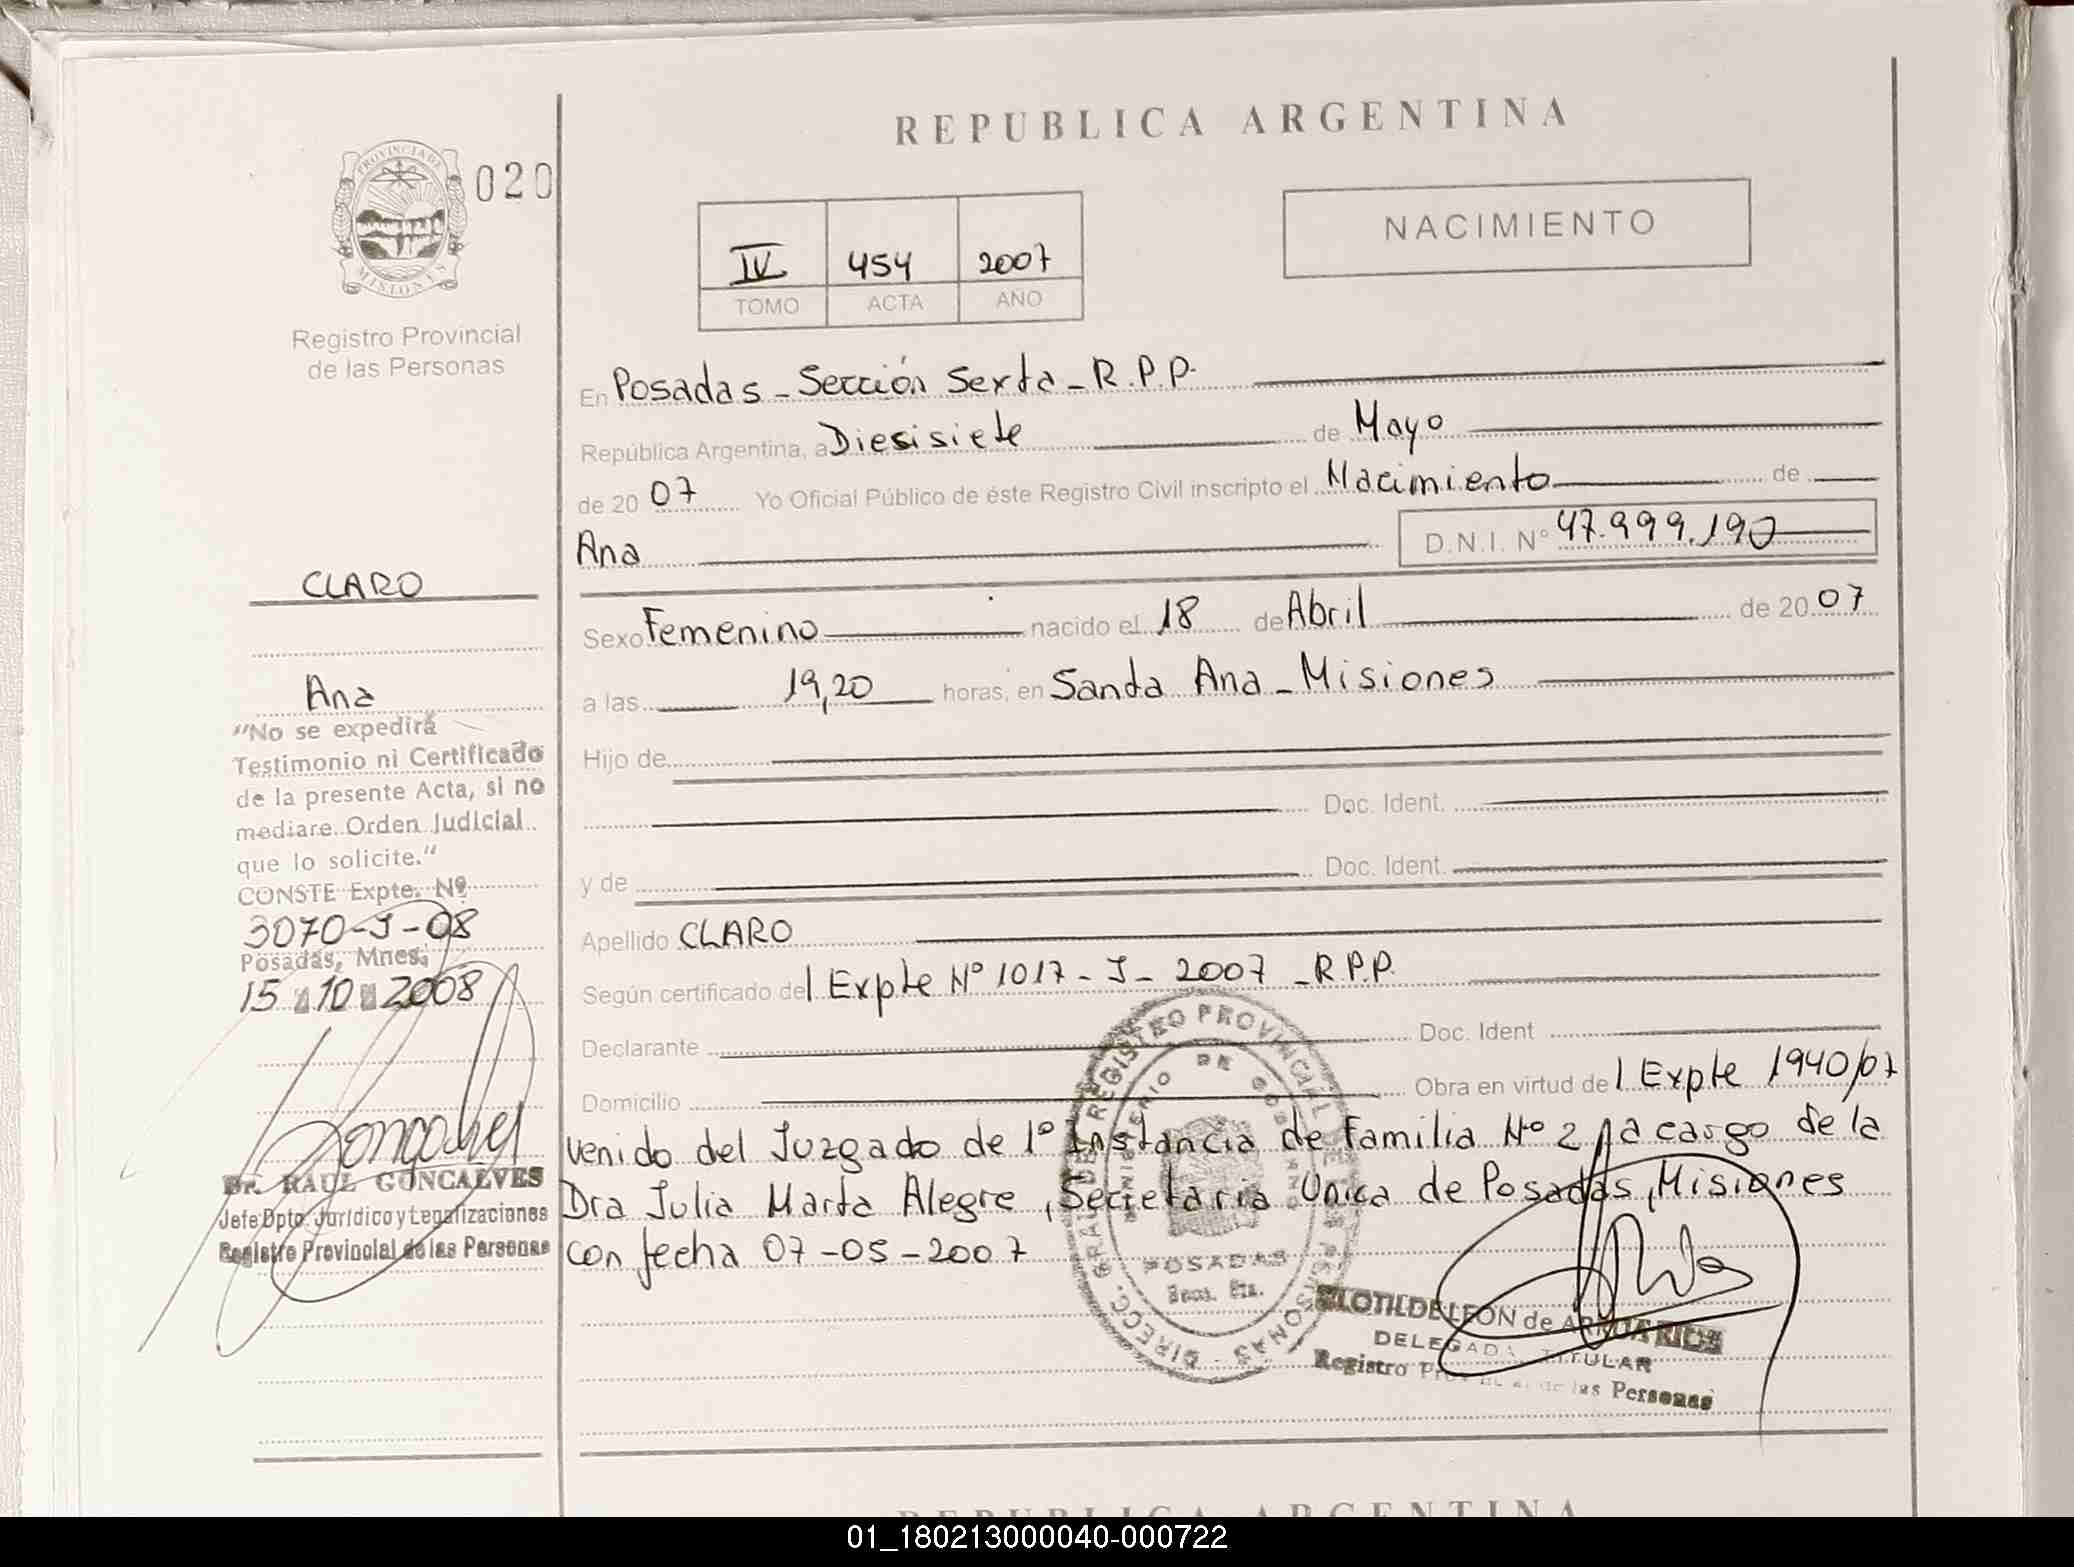 REPUBLICA ARGENTINA
PROVINCIA DE
MISIONES
020
Registro Provincial
de las Personas
IV 454 2007
TOMO ACTA AÑO
NACIMIENTO
En Posadas - Sección Sexta - R.P.P.
República Argentina, a Diesisiete de Mayo
de 20 07 Yo Oficial Público de éste Registro Civil inscripto el Nacimiento de
Ana D.N.I. Nº 47.999.190
Sexo Femenino nacido el 18 de Abril de 20 07
a las 19,20 horas, en Santa Ana - Misiones
Hijo de
Doc. Ident.
y de Doc. Ident.
Apellido CLARO
Según certificado del Expte Nº 1017 - J - 2007 - R.P.P.
Declarante Doc. Ident
Domicilio Obra en virtud del Expte 1940/07
venido del Juzgado de 1º Instancia de Familia Nº 2, a cargo de la
Dra Julia Marta Alegre, Secretaria Unica de Posadas, Misiones
con fecha 07-05-2007
CLARO
Ana
"No se expedirá
Testimonio ni Certificado
de la presente Acta, si no
mediare Orden Judicial
que lo solicite."
CONSTE Expte. Nº
3070-J-08
Posadas, Mnes.
15 10 2008
Dr. RAUL GONCALVES
Jefe Dpto. Jurídico y Legalizaciones
Registro Provincial de las Personas
DIRECC. GRAL. DE REGISTRO PROVINCIAL DE LAS PERSONAS
MINISTERIO DE GOBIERNO
POSADAS
CLOTILDE LEON de
DELEGADA TITULAR
Registro Provincial de las Personas
REPUBLICA ARGENTINA
01_180213000040-000722